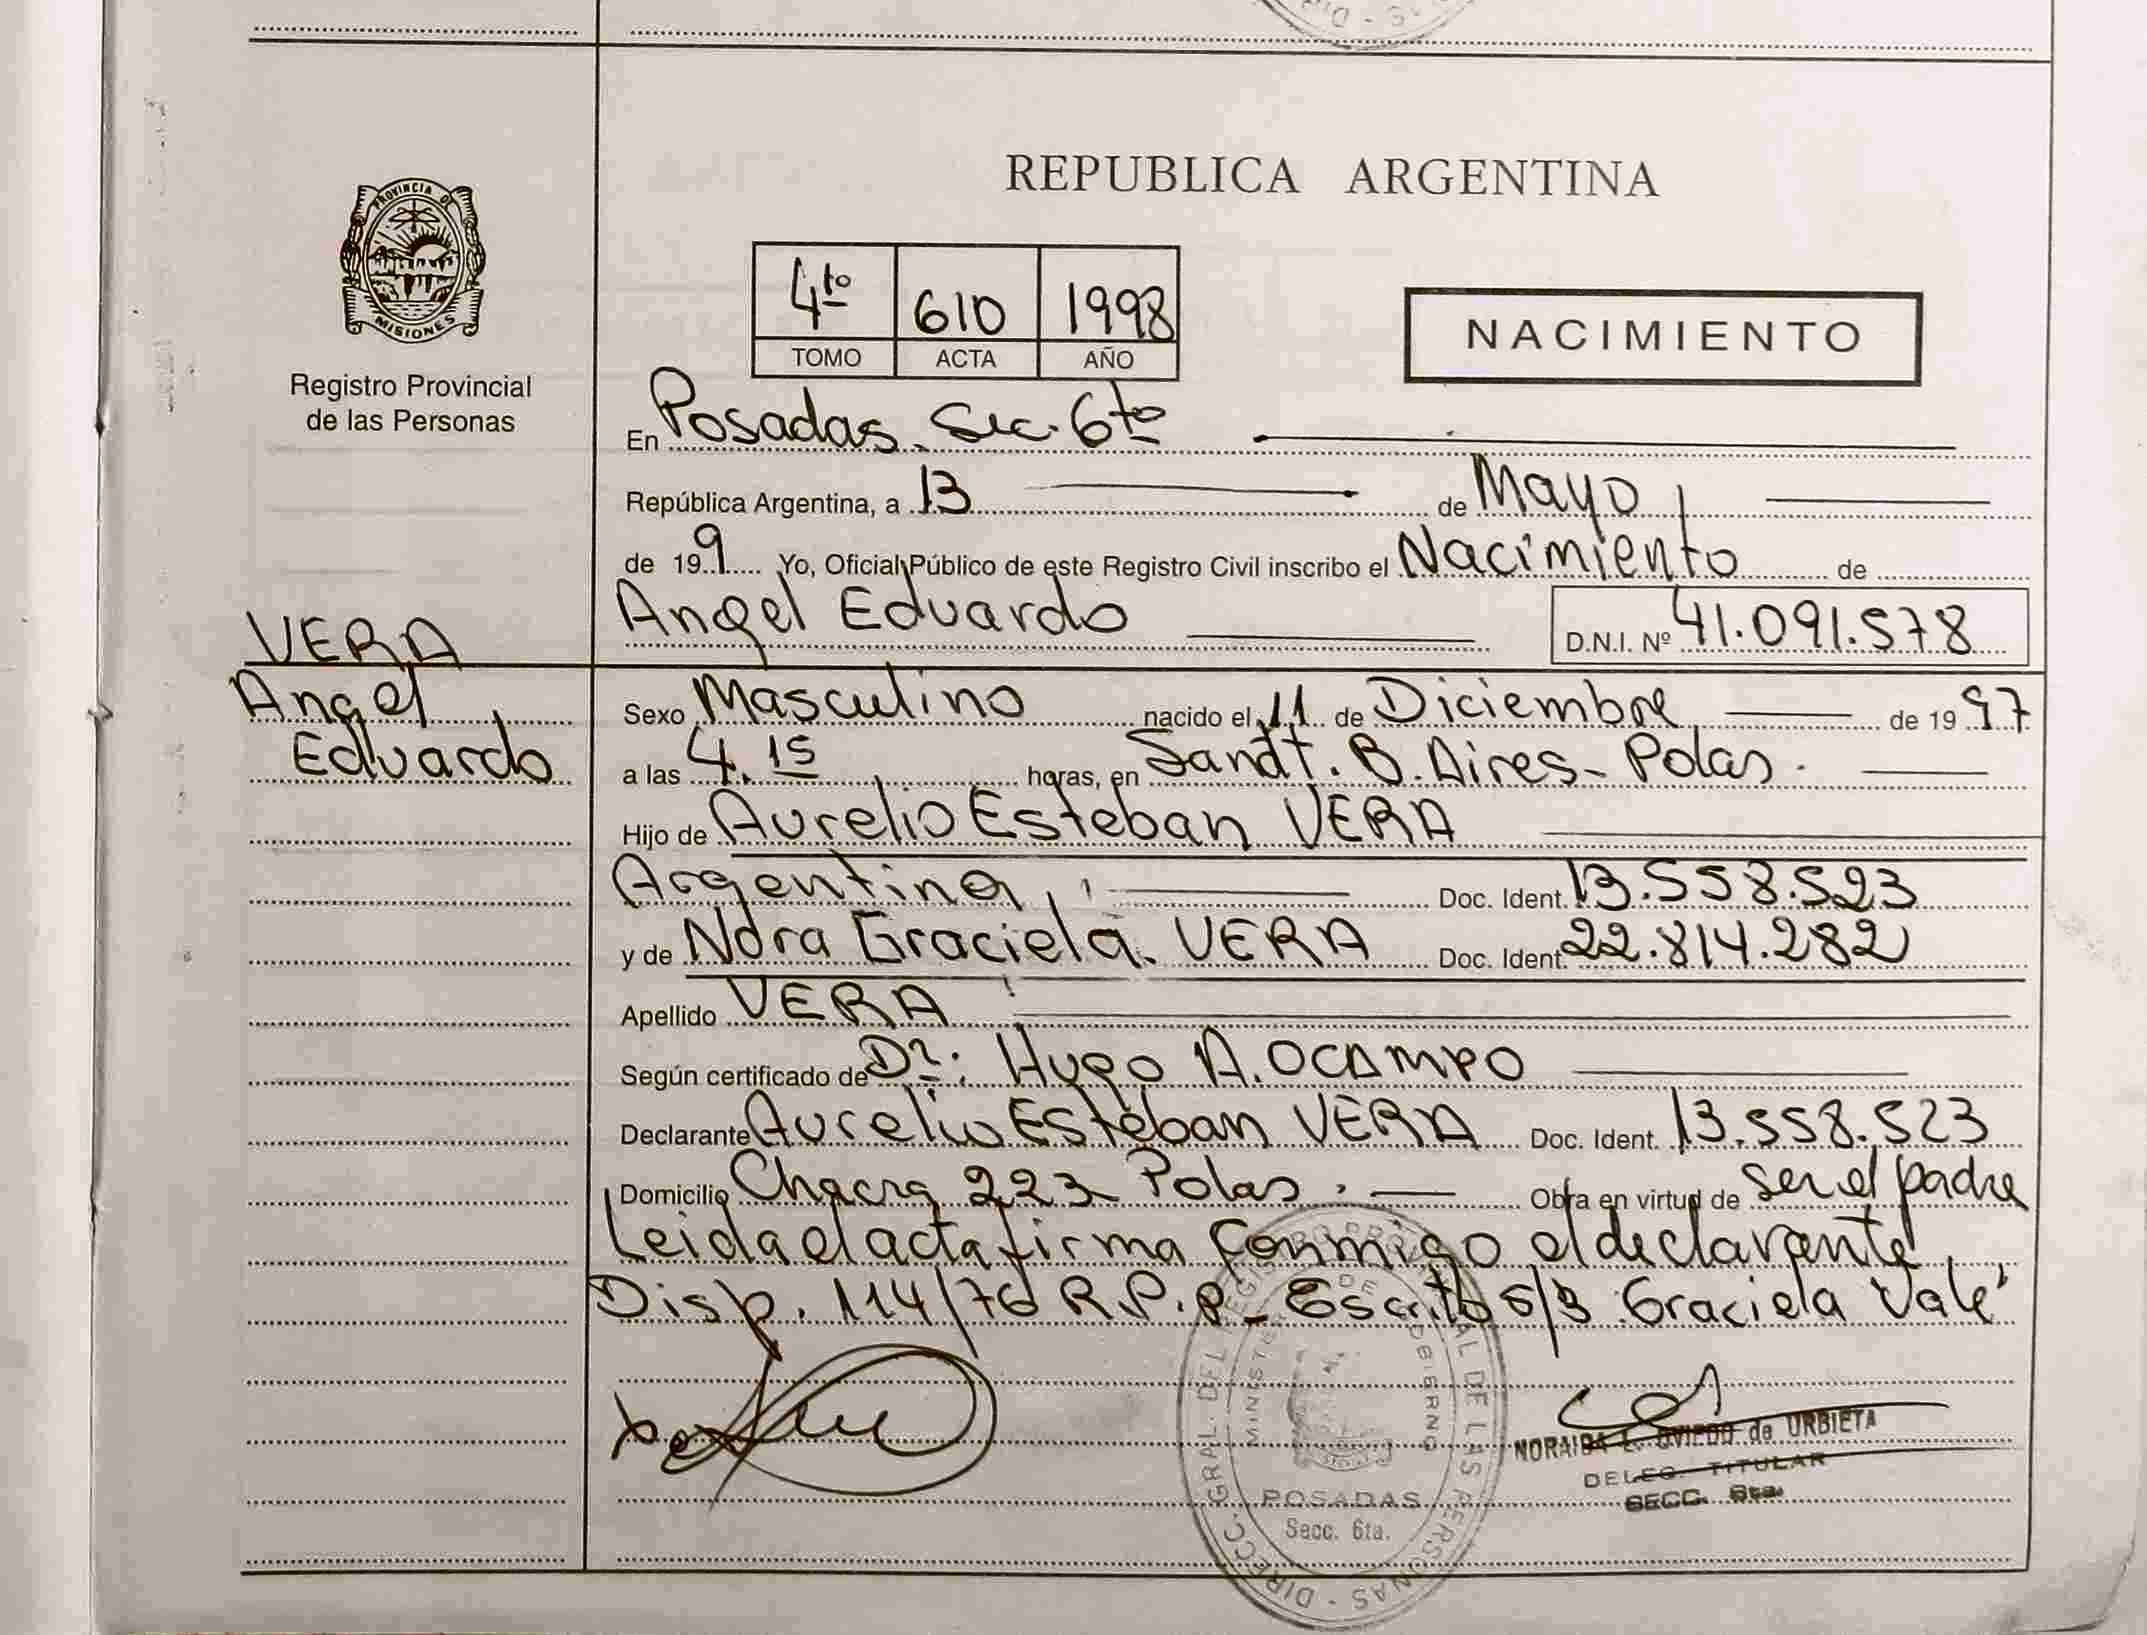 PROVINCIA DE
MISIONES
Registro Provincial
de las Personas
REPUBLICA ARGENTINA
4to 610 1998
TOMO ACTA AÑO
NACIMIENTO
En Posadas. Sec. 6ta
República Argentina, a 13 de Mayo
de 199 Yo, Oficial Público de este Registro Civil inscribo el Nacimiento de
Angel Eduardo D.N.I. Nº 41.091.578
VERA
Angel
Eduardo
Sexo Masculino nacido el 11 de Diciembre de 1997
a las 4.15 horas, en Sandt. B. Aires - Pdas.
Hijo de Aurelio Esteban VERA
Argentina, Doc. Ident. 13.558.523
y de Nora Graciela VERA Doc. Ident. 22.814.282
Apellido VERA
Según certificado de Dr: Hugo A. OCAMPO
Declarante Aurelio Esteban VERA Doc. Ident. 13.558.523
Domicilio Chacra 223 Pdas. Obra en virtud de ser el padre
Leida el acta firma conmigo el declarante
Disp. 114/76 R.P.P. Escrito s/3 Graciela Vale
DIRECC. GRAL. DEL REGISTRO PROVINCIAL DE LAS PERSONAS
MINISTERIO DE GOBIERNO
POSADAS
Secc. 6ta.
NORAIDA L. OVIEDO de URBIETA
DELEG. TITULAR
SECC. 6ta.